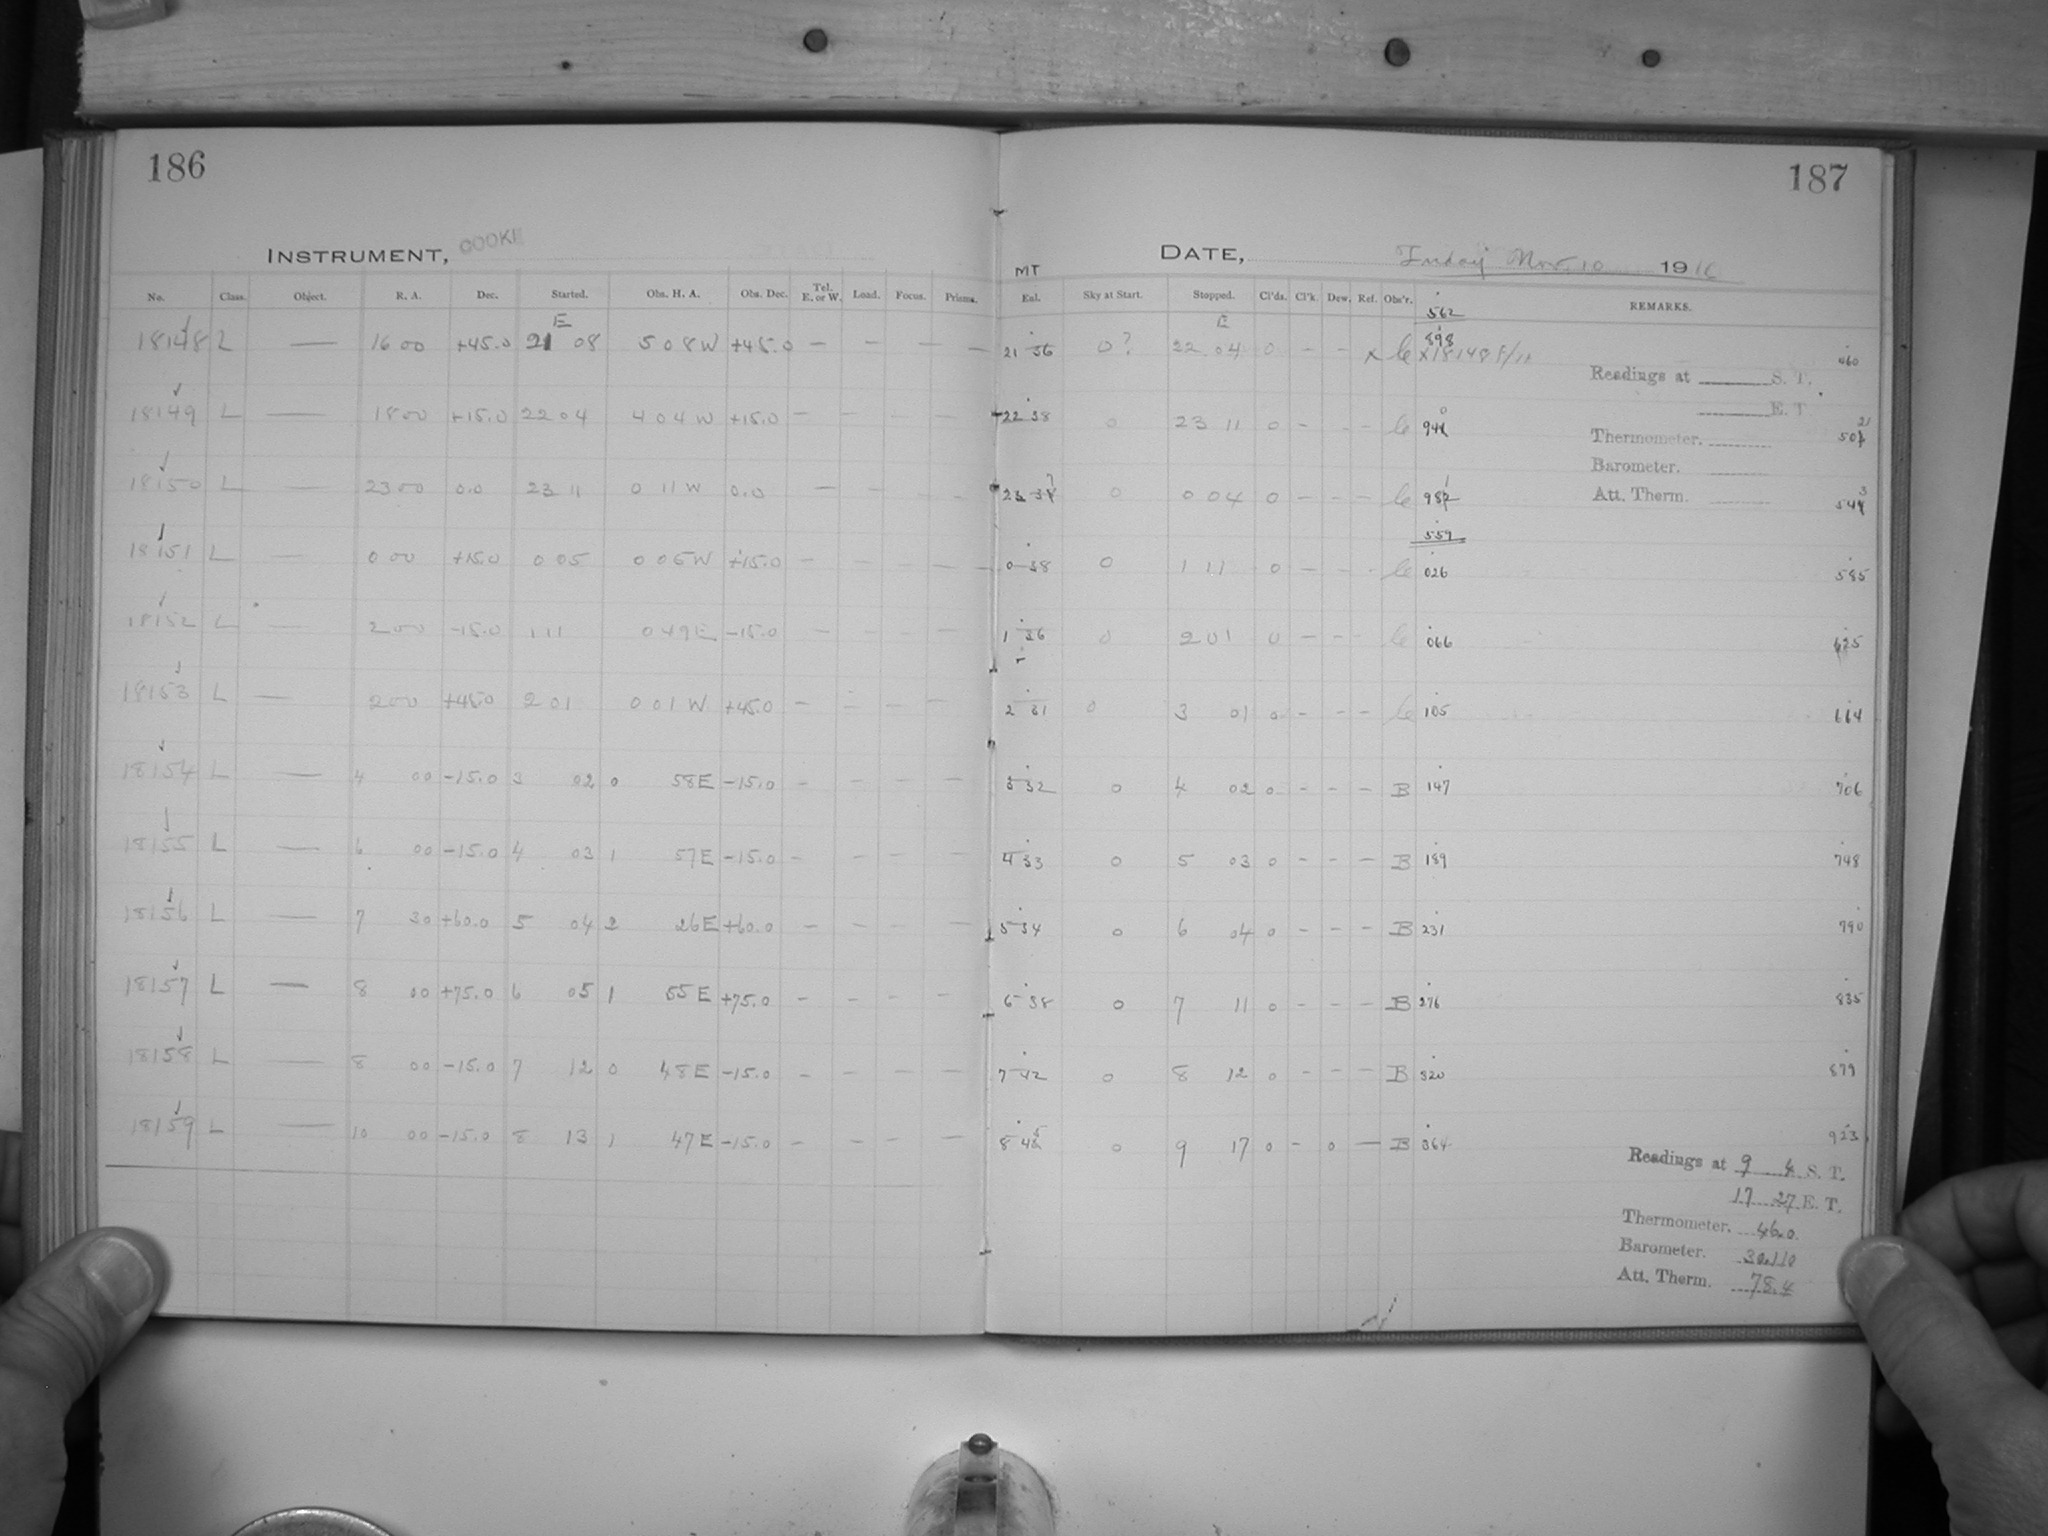 186
187
INSTRUMENT, COOKE
DATE, Friday Nov. 10 1916
MT
No. Class. Object. R. A. Dec. Started. Obs. H. A. Obs. Dec. Tel. E. or W. Load. Focus. Prisms. Eal. Sky at Start. Stopped. Cl'ds. Cl'k. Dew. Ref. Obs'r. REMARKS.
562
E E
18148 L — 16 00 +45.0 21 08 5 08 W +45.0 — — — — 21 36 0? 22 04 0 - - x le 898 x18148 F/11 460
Readings at S. T.
E. T.
18149 L — 18 00 +15.0 22 04 4 04 W +15.0 — — — — 22 38 0 23 11 0 - - - le
Thermometer.
Barometer.
18150 L — 23 00 0.0 23 11 0 11 W 0.0 — — — — 0 0 04 0 - - - le
Att. Therm.
559
18151 L — 0 00 +15.0 0 05 0 05 W +15.0 — — — — 0 38 0 1 11 0 - - - le 026 585
18152 L — 2 00 -15.0 1 11 0 49 E -15.0 — — — — 1 36 0 2 01 0 - - - le 066 625
18153 L — 2 00 +45.0 2 01 0 01 W +45.0 — — — — 2 31 0 3 01 0 - - - le 105 664
18154 L — 4 00 -15.0 3 02 0 58 E -15.0 — — — — 3 32 0 4 02 0 - - - B 147 706
18155 L — 6 00 -15.0 4 03 1 57 E -15.0 — — — — 4 33 0 5 03 0 - - - B 189 748
18156 L — 7 30 +60.0 5 04 2 26 E +60.0 — — — — 5 34 0 6 04 0 - - - B 231 790
18157 L — 8 00 +75.0 6 05 1 55 E +75.0 — — — — 6 38 0 7 11 0 - - - B 276 835
18158 L — 8 00 -15.0 7 12 0 48 E -15.0 — — — — 7 42 0 8 12 0 - - - B 320 879
18159 L — 10 00 -15.0 8 13 1 47 E -15.0 — — — — 8 45 0 9 17 0 - 0 — B 364 923
Readings at 9 4 S. T.
17 27 E. T.
Thermometer. 46.0
Barometer. 30.110
Att. Therm. 78.4